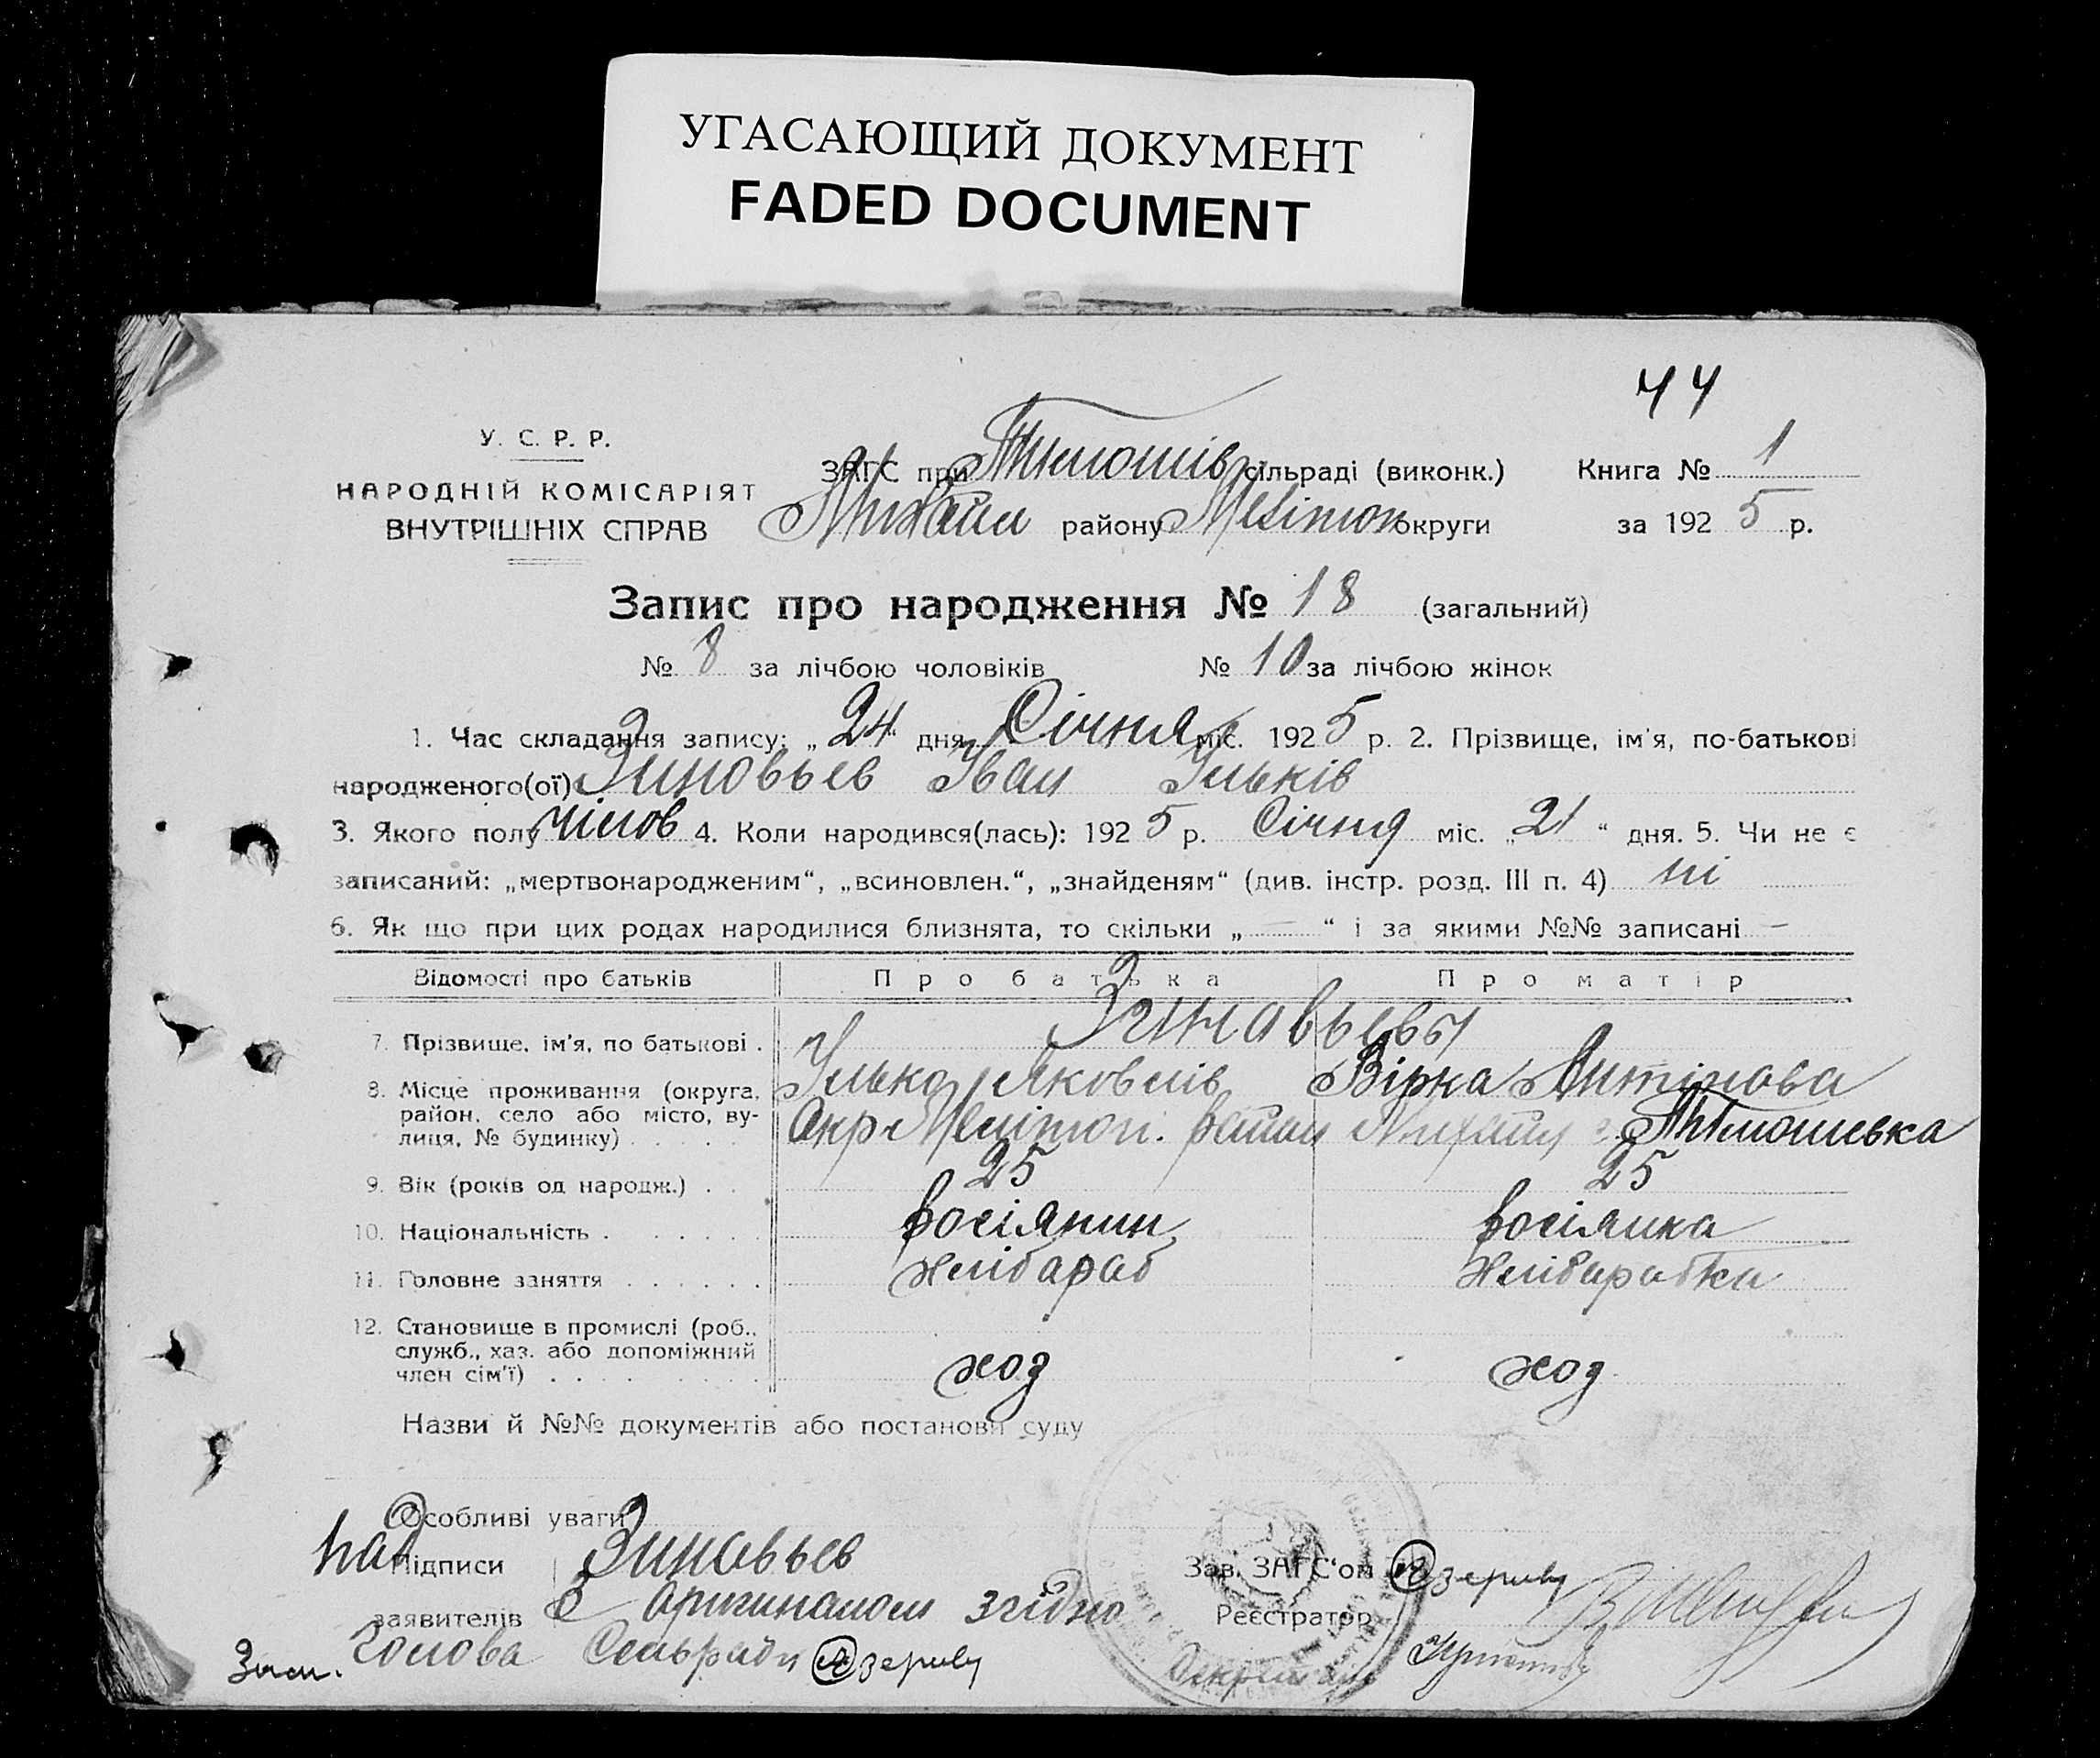 УГАСАЮЩИЙ ДОКУМЕНТ
FADED DOCUMENT
44
У. С. Р. Р.
НАРОДНІЙ КОМІСАРІЯТ
ВНУТРІШНІХ СПРАВ
ЗАГС при Тимошів сільраді (виконк.) Книга № 1
Михайл району Мелітоп округи за 1925 р.
Запис про народження № 18 (загальний)
№ 8 за лічбою чоловіків № 10 за лічбою жінок
1. Час складання запису: „24“ дня Січня міс. 1925 р. 2. Прізвище, ім'я, по-батькові
народженого(ої) Зиновьев Іван Ільків
3. Якого полу чілов 4. Коли народився(лась): 1925 р. Січня міс. „21“ дня. 5. Чи не є
записаний: „мертвонародженим“, „всиновлен.“, „знайденям“ (див. інстр. розд. III п. 4) ні
6. Як що при цих родах народилися близнята, то скільки „—“ і за якими №№ записані —
Відомості про батьків Про батька Про матір
7. Прізвище, ім'я, по батькові . Зинавьевы
Ілько Яковлів Вірка Антінова
8. Місце проживання (округа, район, село або місто, вулиця, № будинку) Окр. Мелітоп. район Михайл с. Тимошевка
9. Вік (років од народж.) . . 25 25
10. Національність . росіянин росіянка
11. Головне заняття . хлібараб хлібарабка
12. Становище в промислі (роб.,
служб., хаз. або допоміжний
член сім'ї) . хоз хоз
Назви й №№ документів або постанови суду
Особливі уваги
Підписи Зиновьев Зав. ЗАГС'ом
заявителів З оригиналом згідно Реєстратор
Зам. Голова Сельради Секретарь